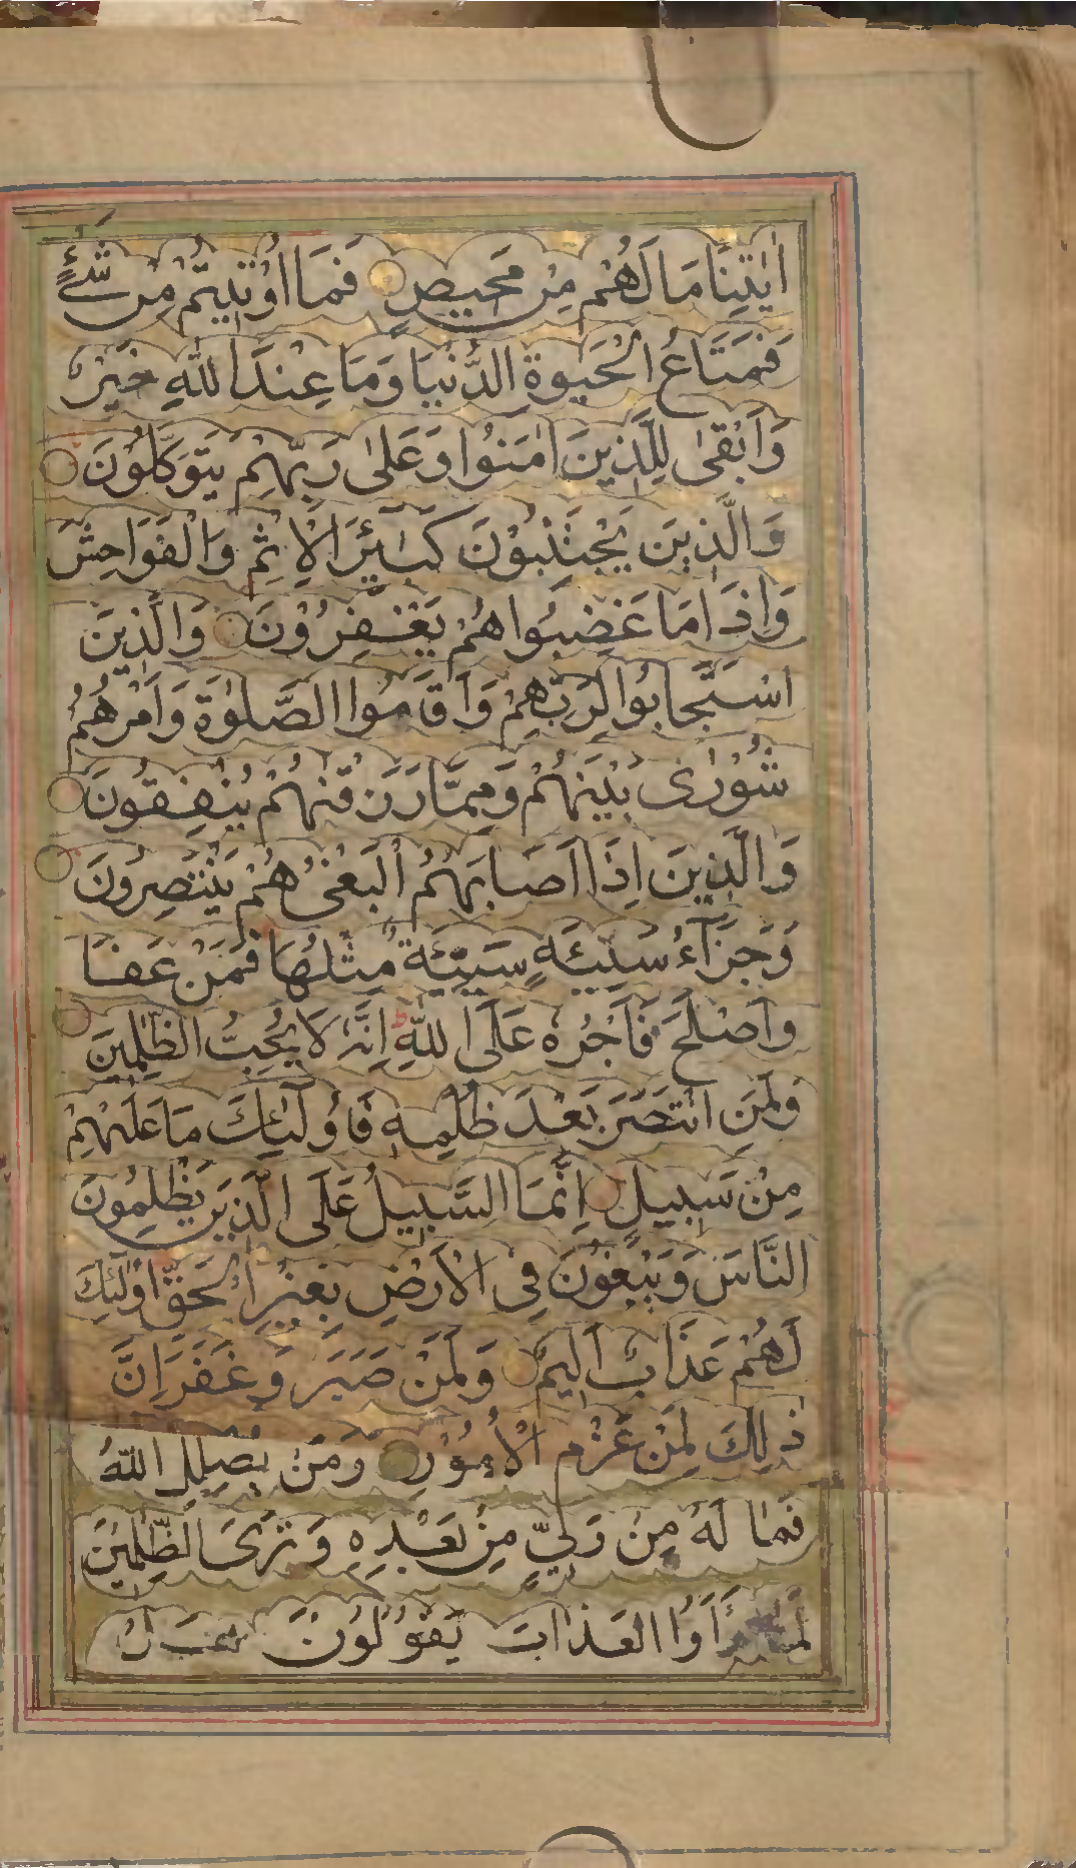 اٰیٰتِنَا مَا لَهُمْ مِنْ مَحِیصٍ فَمَا اُوْتِیتُمْ مِنْ شَیْءٍ
فَمَتَاعُ الْحَیٰوةِ الدُّنْیَا وَمَا عِنْدَ اللّٰهِ خَیْرٌ
وَاَبْقٰی لِلَّذِینَ اٰمَنُوا وَعَلٰی رَبِّهِمْ یَتَوَکَّلُوْنَ
وَالَّذِینَ یَجْتَنِبُوْنَ کَبٰٓئِرَ الْاِثْمِ وَالْفَوَاحِشَ
وَاِذَا مَا غَضِبُوا هُمْ یَغْفِرُوْنَ وَالَّذِینَ
اسْتَجَابُوا لِرَبِّهِمْ وَاَقَامُوا الصَّلٰوةَ وَاَمْرُهُمْ
شُوْرٰی بَیْنَهُمْ وَمِمَّا رَزَقْنٰهُمْ یُنْفِقُونَ
وَالَّذِینَ اِذَا اَصَابَهُمُ الْبَغْیُ هُمْ یَنْتَصِرُونَ
وَجَزَآءُ سَیِّئَةٍ سَیِّئَةٌ مِثْلُهَا فَمَنْ عَفَا
وَاَصْلَحَ فَاَجْرُهُ عَلَی اللّٰهِ اِنَّهُ لَا یُحِبُّ الظّٰلِمِینَ
وَلَمَنِ انْتَصَرَ بَعْدَ ظُلْمِهِ فَاُولٰٓئِكَ مَا عَلَیْهِمْ
مِنْ سَبِیلٍ اِنَّمَا السَّبِیلُ عَلَی الَّذِینَ یَظْلِمُونَ
النَّاسَ وَیَبْغُونَ فِی الْاَرْضِ بِغَیْرِ الْحَقِّ اُولٰٓئِكَ
لَهُمْ عَذَابٌ اَلِیمٌ وَلَمَنْ صَبَرَ وَغَفَرَ اِنَّ
ذٰلِكَ لَمِنْ عَزْمِ الْاُمُوْرِ وَمَنْ یُضْلِلِ اللّٰهُ
فَمَا لَهُ مِنْ وَلِیٍّ مِنْ بَعْدِهِ وَتَرَی الظّٰلِمِینَ
لَمَّا رَاَوُا الْعَذَابَ یَقُوْلُوْنَ